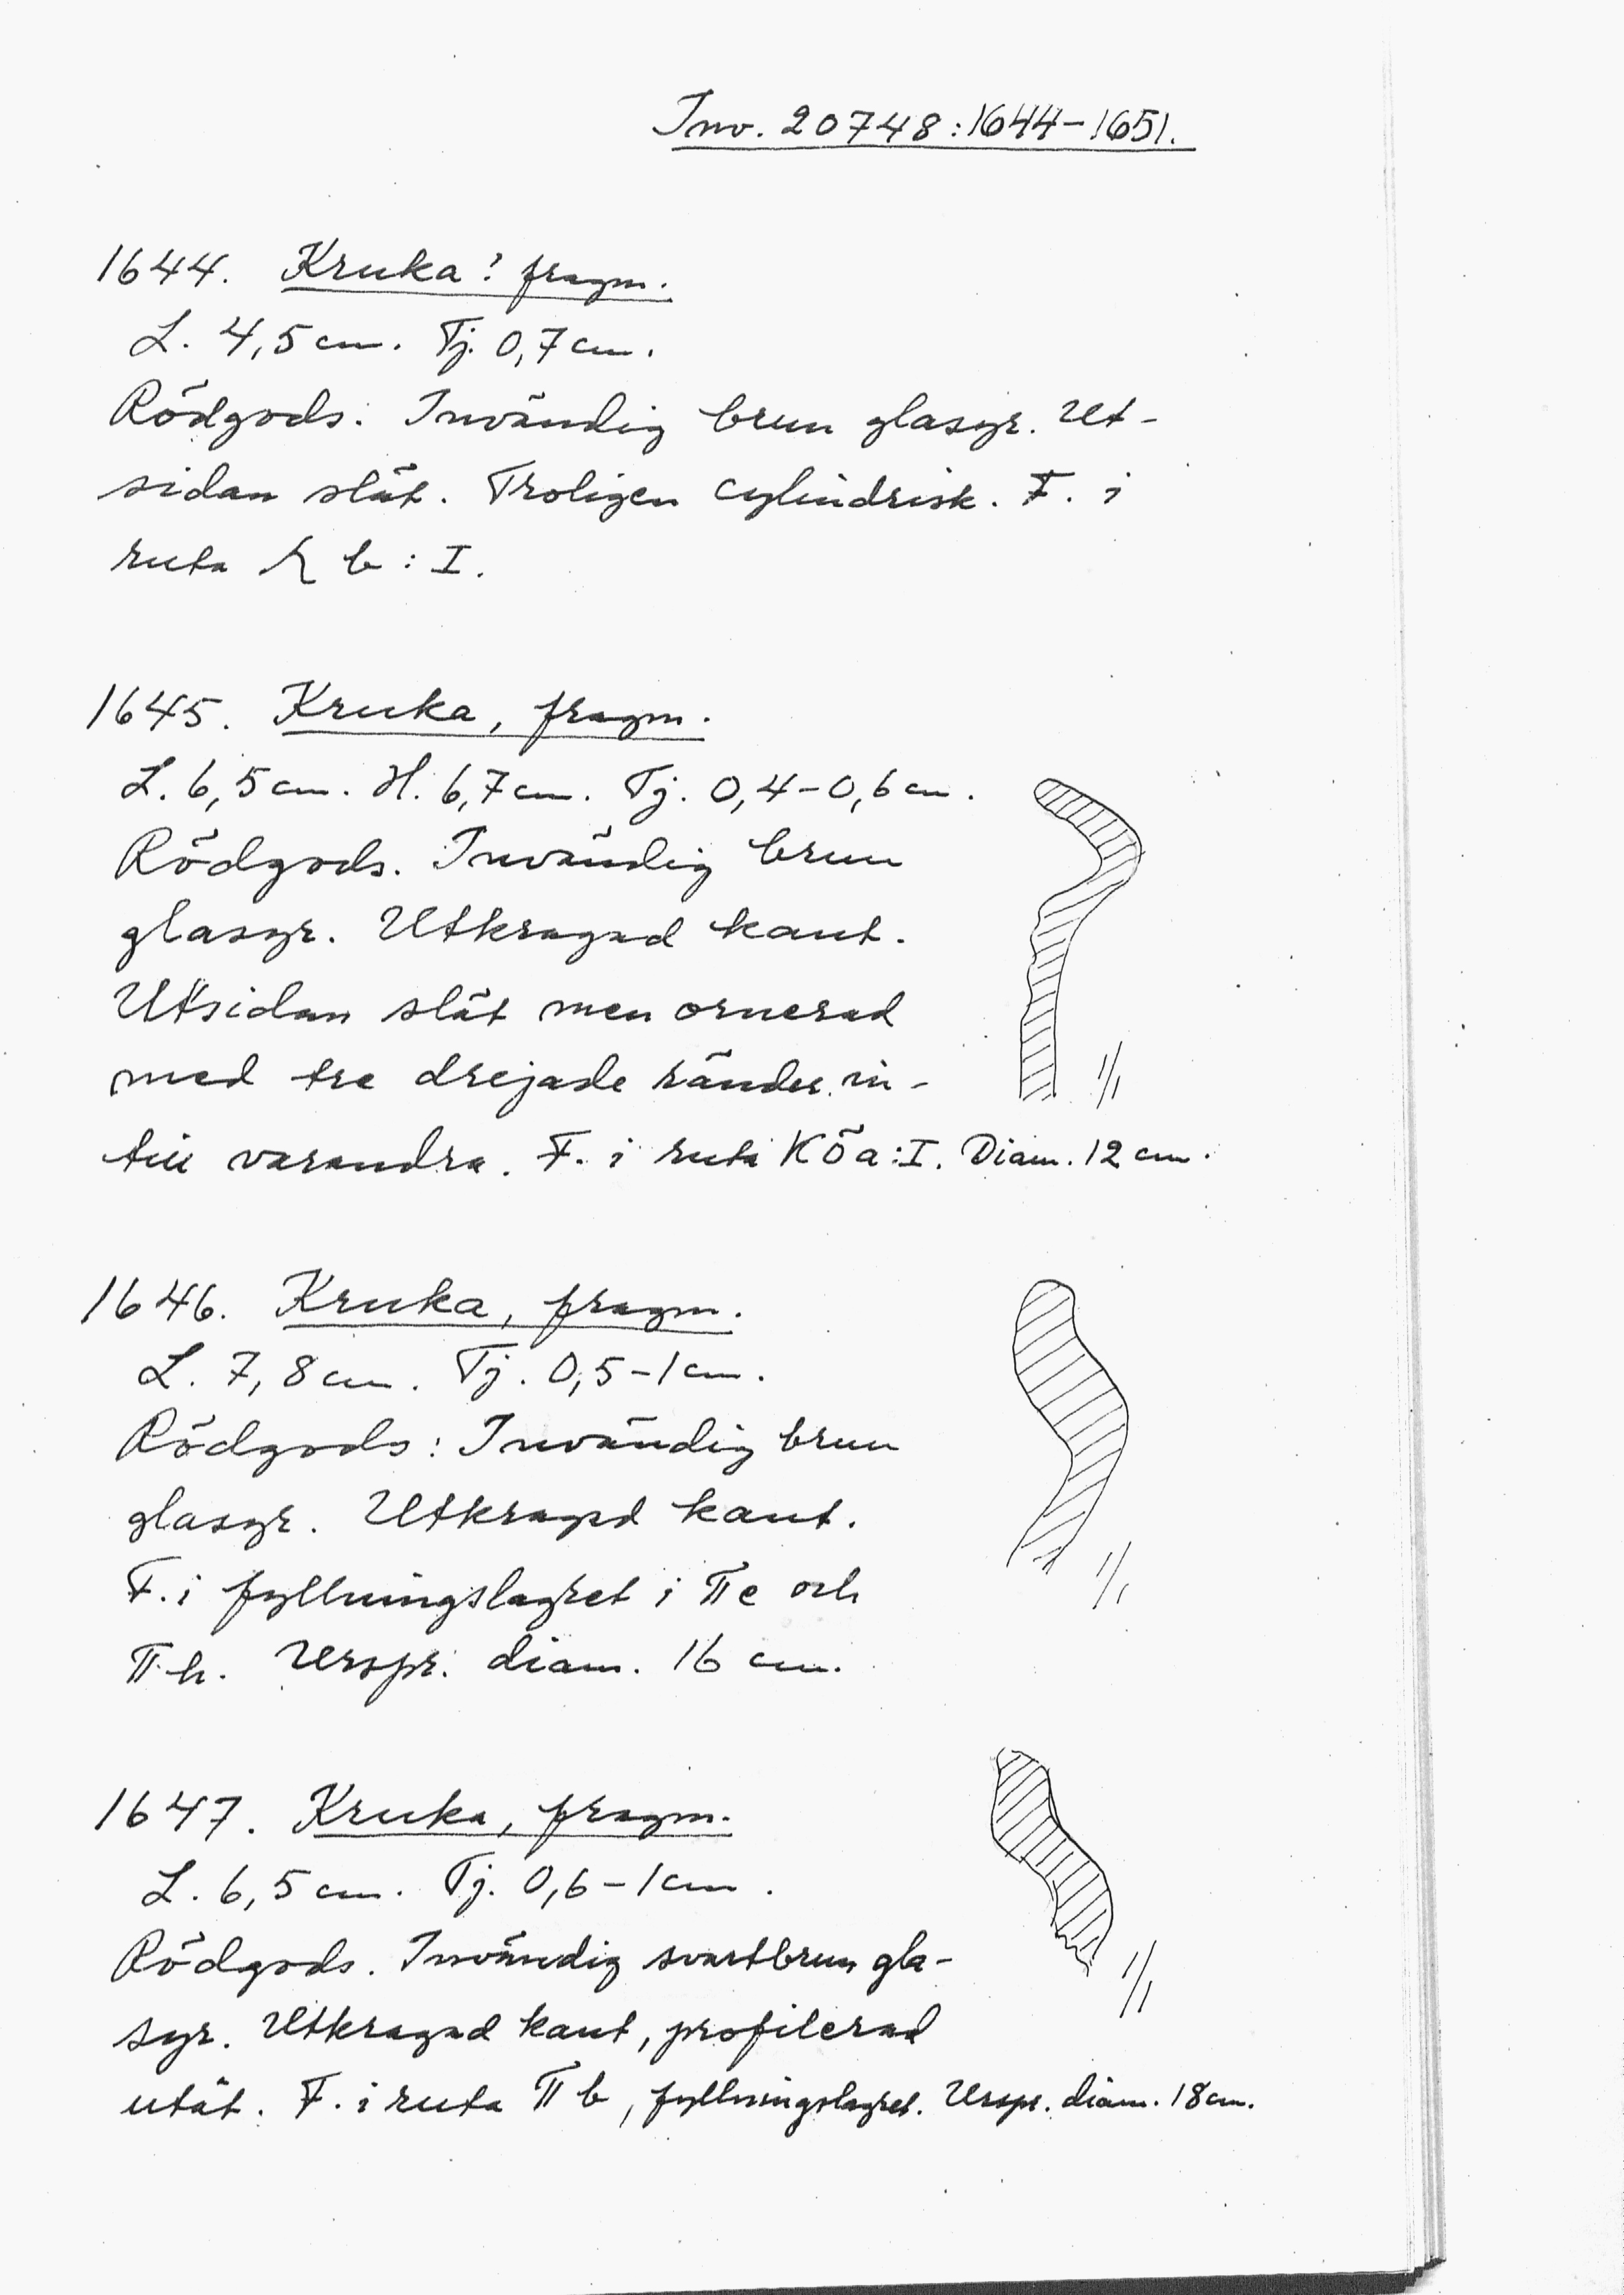 Inv. 20748:1644-1651.
1644. Kruka? fragm.
L. 4,5 cm. Tj. 0,7 cm.
Rödgods. Invändig brun glasyr. Ut-
sidan slät. Troligen cylindrisk. F. i
ruta b: I.
1645. Kruka, fragm.
L. 6,5 cm. H. 6,7 cm. Tj. 0,4-0,6 cm.
Rödgods. Invändig brun
glasyr. Utkragad kant.
Utsidan slät men ornerad
med tre drejade ränder in-
till varandra. F. i ruta KÖa:I. Diam. 12 cm.
1/1
1646. Kruka, fragm.
L. 7,8 cm. Tj. 0,5-1 cm.
Rödgods: Invändig brun
glasyr. Utkragad kant.
F. i fyllningslagret i π e och
π h. Urspr. diam. 16 cm.
1/1
1647. Kruka, fragm.
L. 6,5 cm. Tj. 0,6-1 cm.
Rödgods. Invändig svartbrun gla-
syr. Utkragad kant, profilerad
utåt. F. i ruta π b, fyllningslagret. Urspr. diam. 18 cm.
1/1